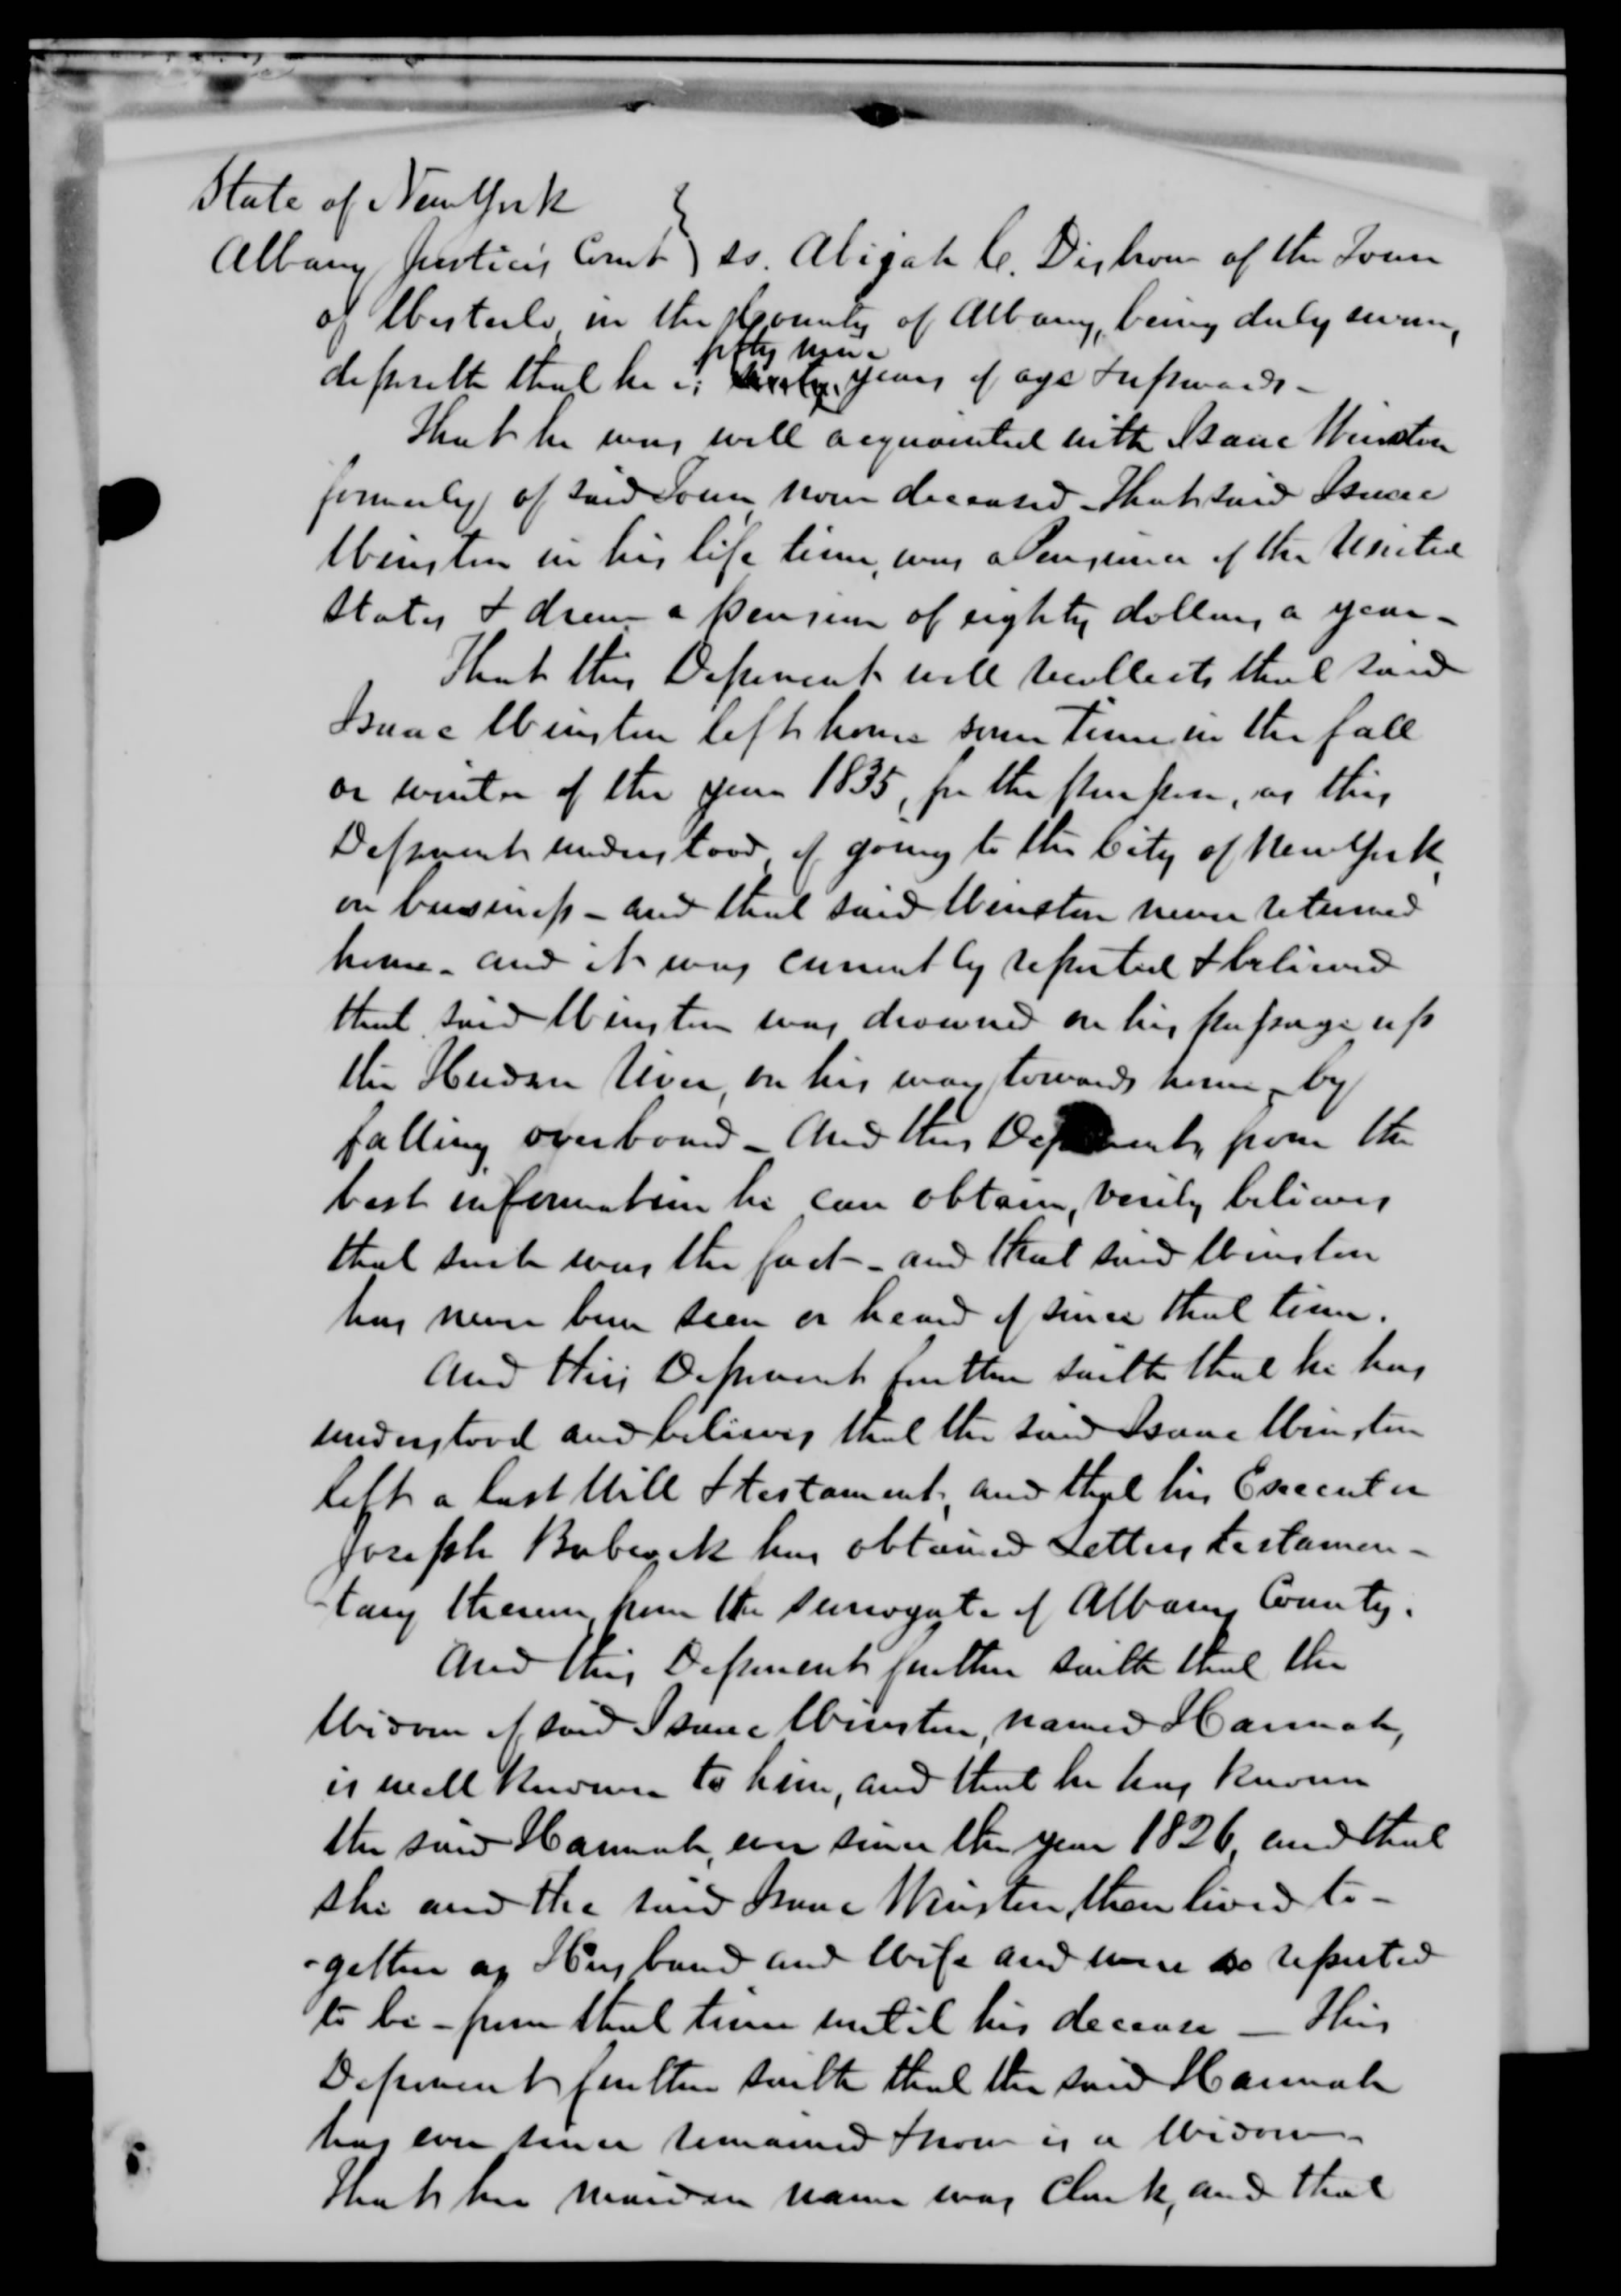 State of New York
Albany Justices Court } ss. Abijah C. Disbrow of the Town
of Westerlo, in the County of Albany, being duly sworn,
fifty nine
deposeth that he is years of age & upwards -
That he was well acquainted with Isaac Winston
formerly of said Town, now deceased - That said Isaac
Winston in his life time, was a Pensioner of the United
States & drew a pension of eighty dollars a year -
That this Deponent well recollects that said
Isaac Winston left home some time in the fall
or winter of the year 1835, for the purpose, as this
Deponent understood, of going to the City of New York,
on business - and that said Winston never returned
home - and it was currently reported & believed
that said Winston was drowned on his passage up
the Hudson River, on his way towards home, by
falling overboard - And this Deponent, from the
best information he can obtain, verily believes
that such was the fact - and that said Winston
has never been seen or heard of since that time.
And this Deponent further saith that he has
understood and believes that the said Isaac Winston
left a last Will & testament, and that his Executor
Joseph Babcock has obtained Letters testamen-
-tary thereon, from the Surrogate of Albany County.
And this Deponent further saith that the
Widow of said Isaac Winston, named Hannah,
is well known to him, and that he has known
the said Hannah, ever since the year 1826, and that
she and the said Isaac Winston, then lived to-
-gether as Husband and Wife and were so reputed
to be - from that time until his decease — This
Deponent further saith that the said Hannah
has ever since remained & now is a Widow -
That her maiden name was Clark, and that